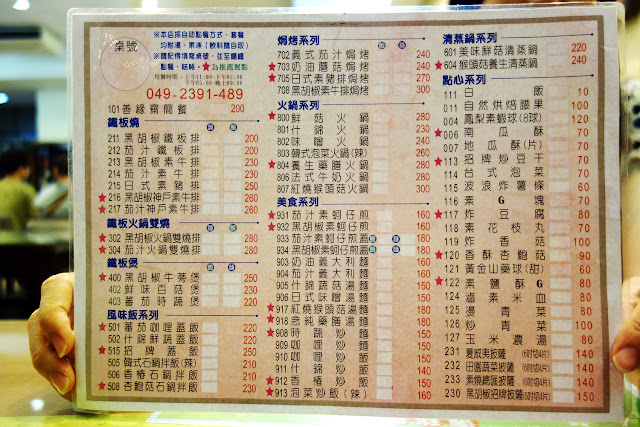 桌號
※本店採自助點餐方式，套餐
均附湯、果凍（飲料請自取）
※請記得填寫桌號，並至櫃檯
點餐、結帳。★為推薦餐點
049-2391-489
101善緣齋龍餐 200
鐵板燒
211 黑胡椒鐵板排 200
212 茄汁鐵板排 200
213 黑胡椒素牛排 200
214 茄汁素牛排 200
215 日式素豬排 200
★216 黑胡椒神戶素牛排 250
★217 茄汁神戶素牛排 250
鐵板火鍋雙燒
★302 黑胡椒火鍋雙燒排 280
★304 茄汁火鍋雙燒排 280
鐵板煲
★400 黑胡椒牛蒡煲 250
402 鮮味百菇煲 200
403 番茄時蔬煲 200
風味飯系列
★501 番茄咖哩蓋飯 220
502 什錦鮮蔬蓋飯 220
★515 招牌蓋飯 250
505 韓式石鍋拌飯(辣) 210
506 香椿石鍋拌飯 210
★508 杏鮑菇石鍋拌飯 230
焗烤系列
702 義式茄汁焗烤 240
★703 奶油蘑菇焗烤 240
★705 日式素豬排焗烤 270
708 黑胡椒素牛排焗烤 300
火鍋系列
★800 鮮菇火鍋 240
801 什錦火鍋 240
802 味噌火鍋 240
803 韓式泡菜火鍋(辣) 240
★804 養生藥膳火鍋 280
806 法式牛奶火鍋 280
807 紅燒猴頭菇火鍋 280
美食系列
★931 茄汁素蚵仔煎 160
★932 黑胡椒素蚵仔煎 160
933 茄汁素蚵仔蓋飯 200
934 黑胡椒素蚵仔蓋飯 200
903 奶油義大利麵 160
904 茄汁義大利麵 160
905 什錦蔬菇湯麵 150
906 日式味噌湯麵 150
★917 紅燒猴頭菇湯麵 180
★918 念純藥膳湯麵 180
★908 時蔬炒麵 150
909 咖哩炒麵 150
910 咖哩炒飯 150
911 什錦炒飯 150
★912 香椿炒飯 150
★913 泡菜炒飯（辣） 160
清蒸鍋系列
601 美味鮮菇清蒸鍋 220
★604 猴頭菇養生清蒸鍋 280
點心系列
111 白飯 10
011 自然烘焙腰果 100
004 鳳梨素蝦球(8球) 120
★006 南瓜酥 70
007 地瓜酥 70
★113 招牌炒豆干 70
114 台式泡菜 70
115 波浪炸薯條 60
116 素G塊 70
★117 炸豆腐 80
118 素花枝丸 70
119 炸香菇 100
★120 香酥杏鮑菇 90
121 黃金山藥球(甜) 60
★122 素鹽酥G 80
124 滷素米血 80
125 燙青菜 80
126 炒青菜 100
127 玉米濃湯 80
231 夏威夷披薩(6吋切4片) 140
232 田園蔬菜披薩(6吋切4片) 140
233 素燒總匯披薩(6吋切4片) 140
230 黑胡椒招牌披薩(6吋切4片) 150